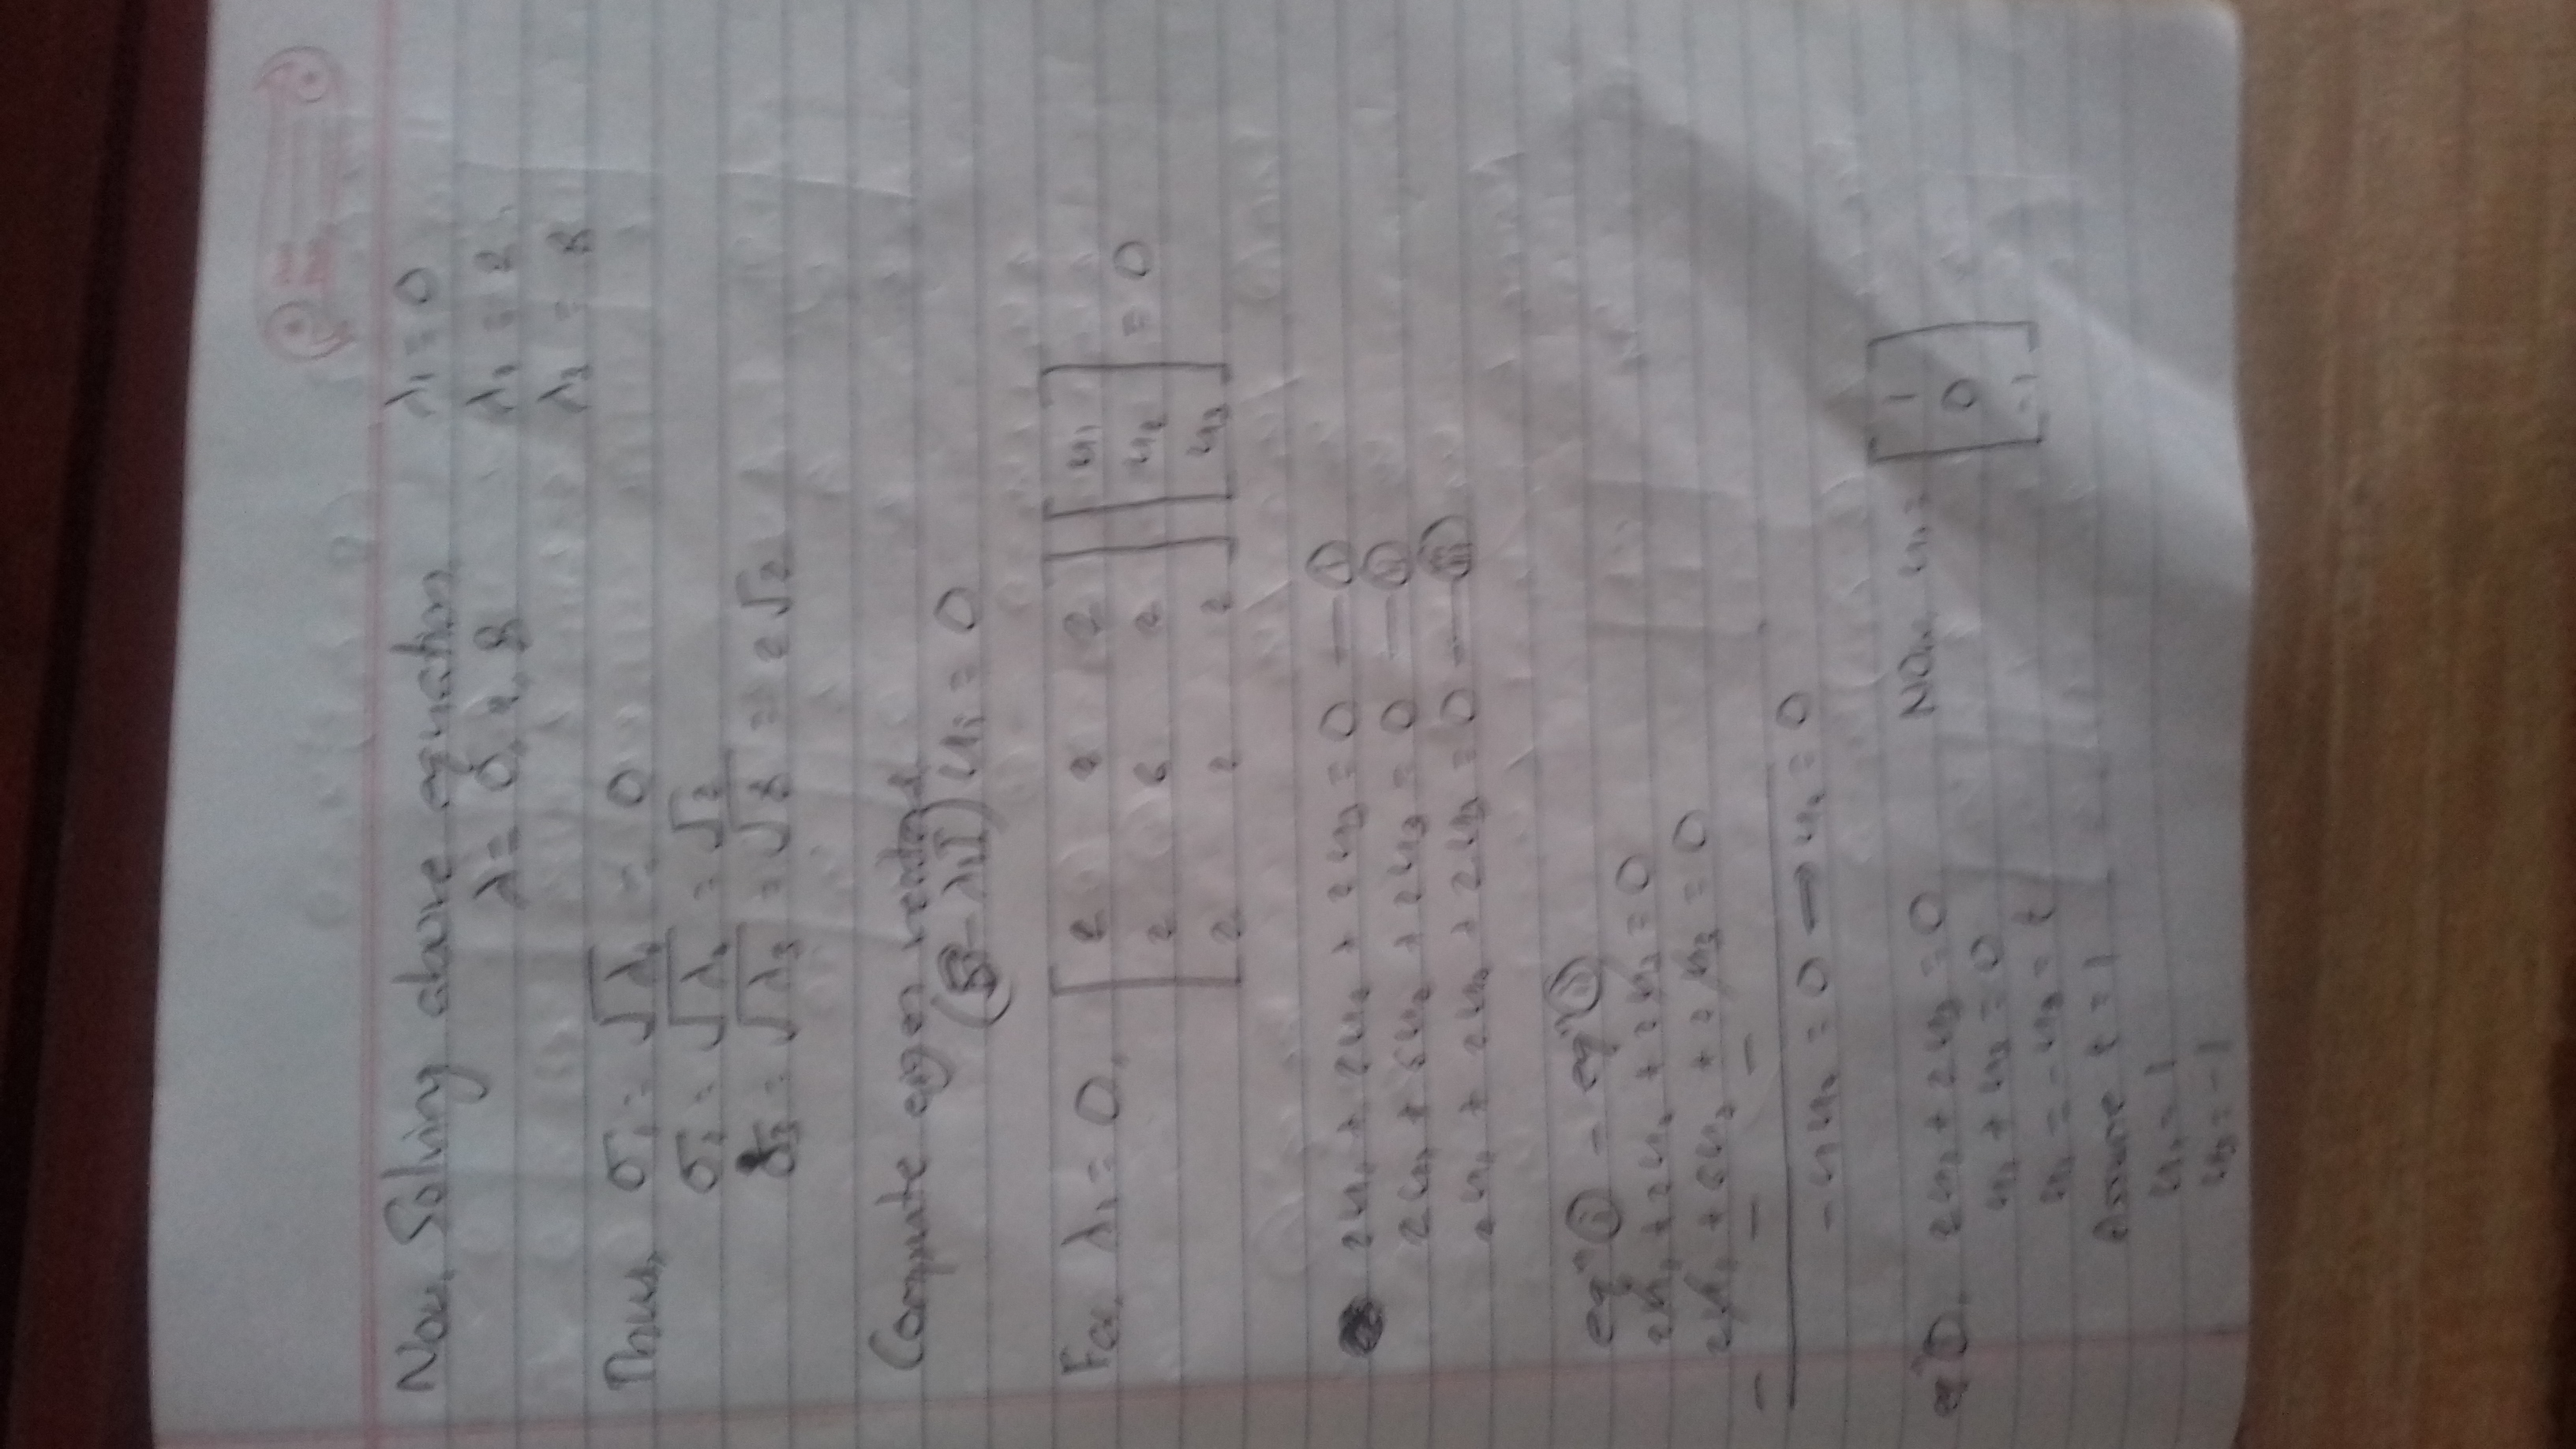 Now, Solving above equation, λ₁ = 0
λ = 0, 2, 8 λ₂ = 2
λ₃ = 8
Thus, σ₁ = √λ₁ = 0
σ₂ = √λ₂ = √2
σ₃ = √λ₃ = √8 = 2√2
Compute eigen vectors
(S - λᵢI) uᵢ = 0
For λ₁ = 0, [2 2 2] [u₁] = 0
[2 6 2] [u₂]
[2 2 2] [u₃]
2u₁ + 2u₂ + 2u₃ = 0 — ⓘ
2u₁ + 6u₂ + 2u₃ = 0 — (ii)
2u₁ + 2u₂ + 2u₃ = 0 — (iii)
eqⁿ (i) - eqⁿ (ii)
2u₁ + 2u₂ + 2u₃ = 0
2u₁ + 6u₂ + 2u₃ = 0
- - -
-4u₂ = 0 → u₂ = 0
eqⁿ (i), 2u₁ + 2u₃ = 0 Now, u₁ = [1]
u₁ + u₃ = 0 [0]
u₁ = -u₃ = t [-1]
Assume t = 1
u₁ = 1
u₃ = -1